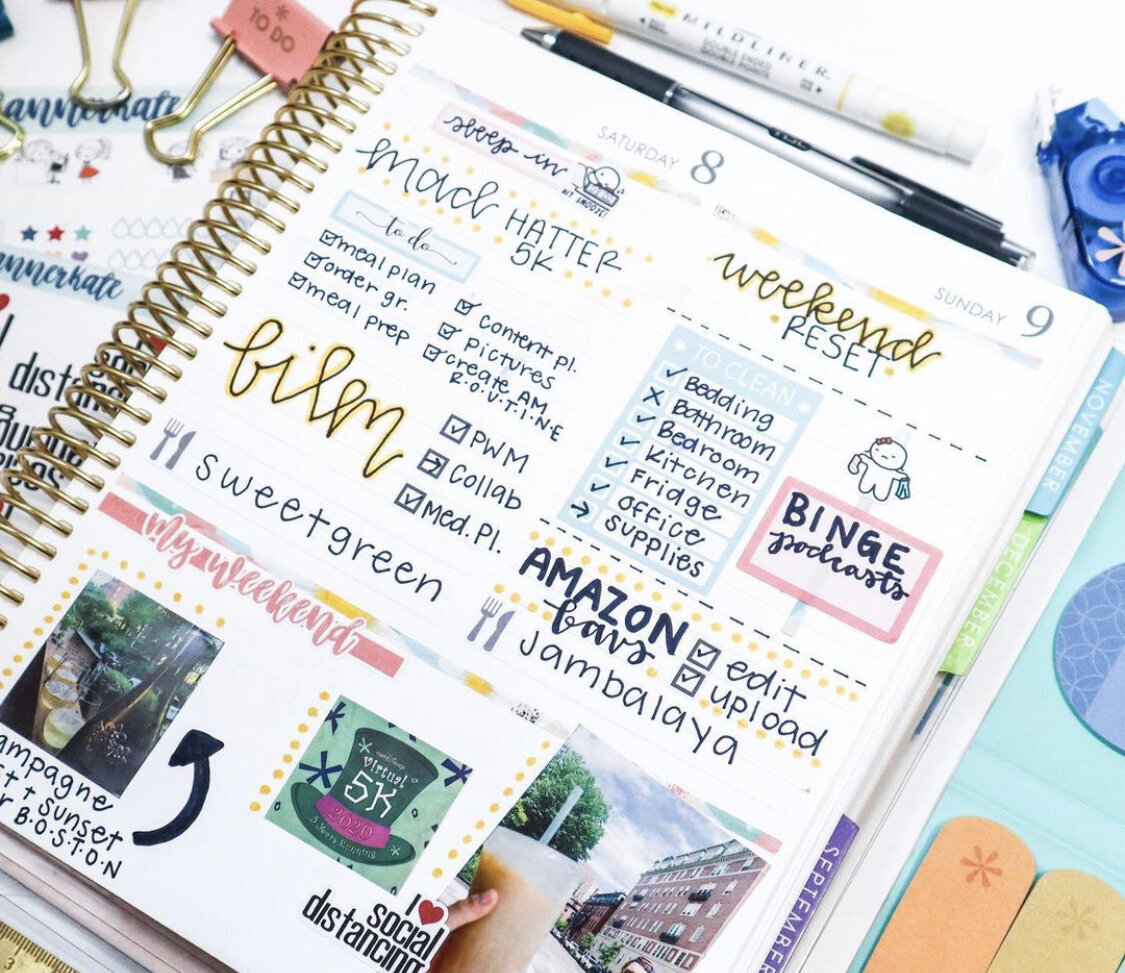 TO DO
annerkate
nnerkate
MILDLINER
DOUBLE ENDED
SATURDAY 8
sleep in
HIT SNOOZE
mad HATTER
5K
to do
meal plan
order gr.
meal prep
content pl.
pictures
create AM
R.O.U.T.I.N.E
film
PWM
Collab
Med.Pl.
sweetgreen
SUNDAY 9
weekend
RESET
TO CLEAN
Bedding
Bathroom
Bedroom
Kitchen
Fridge
office
supplies
BINGE
podcasts
AMAZON
bavs
edit
upload
Jambalaya
my weekend
ampagne
st + sunset
r B.O.S.T.O.N
virtual
5K
2020
5 Years Running
I
social
distancing
dista
NOVEMBER
DECEMBER
SEPTEMBER
3